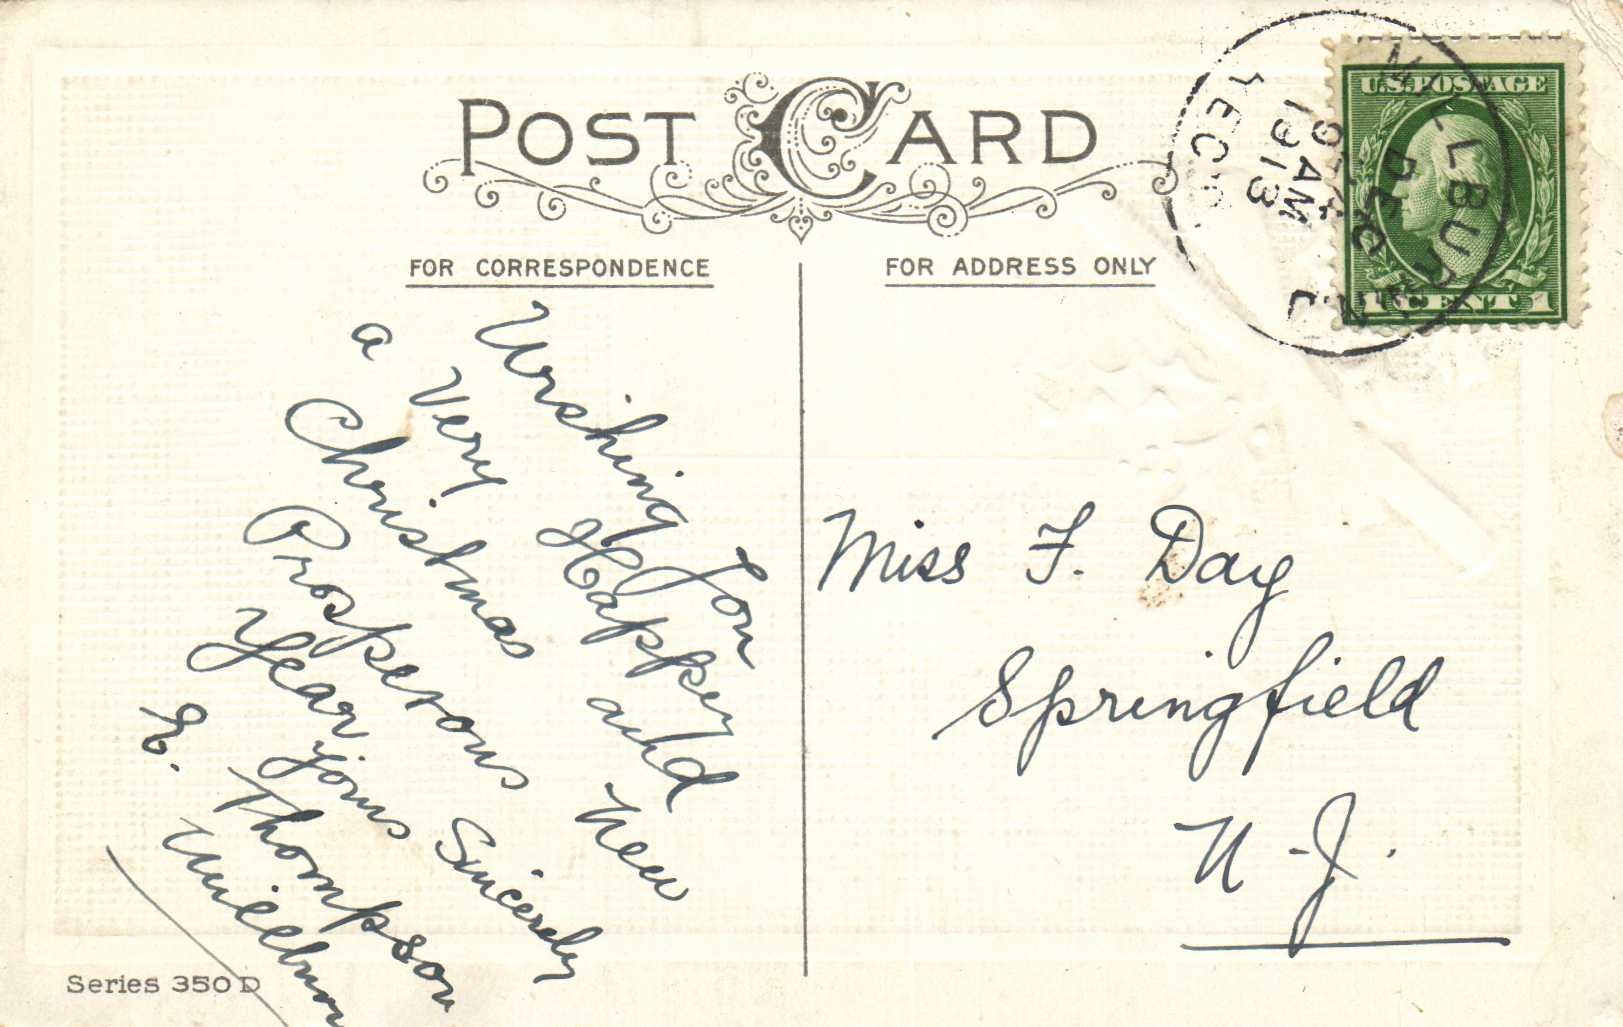 POST CARD
FOR CORRESPONDENCE
FOR ADDRESS ONLY
U.S. POSTAGE
1 CENT 1
MILLBURN
DEC
10 AM
1913
Wishing You
a Very Happy
Christmas and
Prosperous New
Year yours Sincerely
E. Thompson
Millburn
Miss F. Day
Springfield
N.J.
Series 350 D